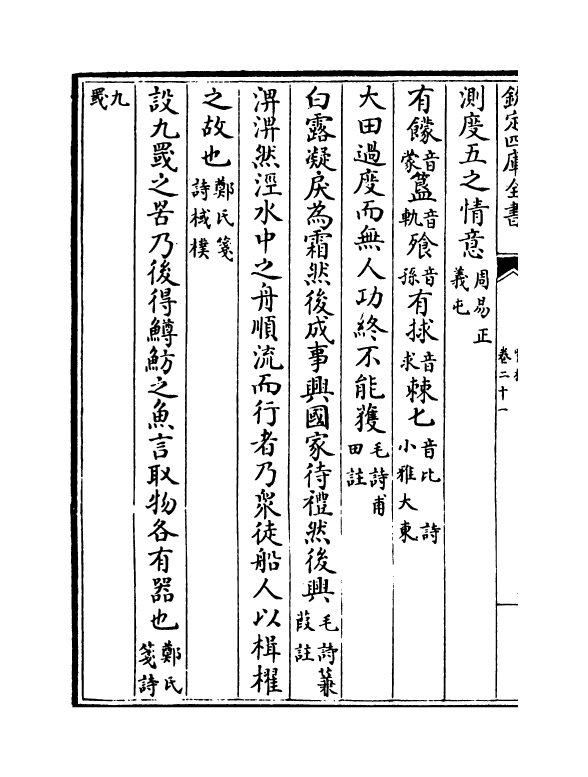 欽定四庫全書
卷二十一
測度五之情意周易正義屯
有饛音蒙簋音軌飱音孫有捄音求棘七音比 詩小雅大東
大田過度而無人功終不能獲毛詩甫田註
白露凝戾為霜然後成事興國家待禮然後興毛詩蒹葭註
淠淠然涇水中之舟順流而行者乃衆徒船人以楫櫂
之故也鄭氏箋詩棫樸
設九罭之罟乃後得鱒魴之魚言取物各有器也鄭氏箋詩
九罭